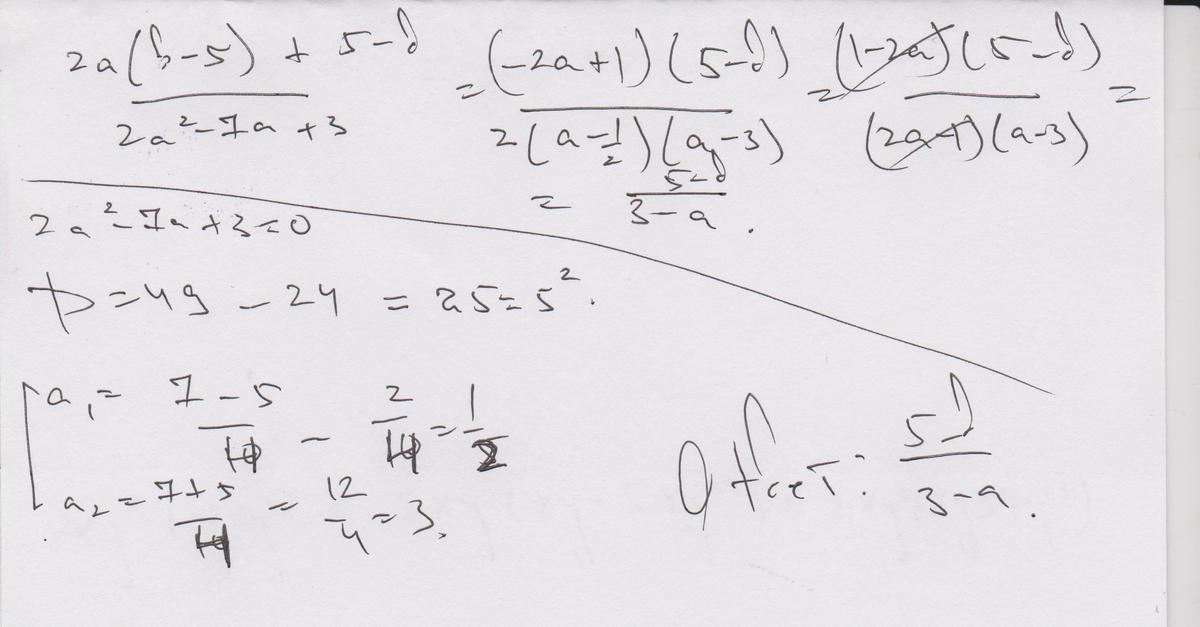 (2a(b-5) + 5-b)/(2a²-7a+3) = ((-2a+1)(5-b))/(2(a-1/2)(a-3)) = ((1-2a)(5-b))/((2a-1)(a-3)) =
= (5-b)/(3-a).
2a²-7a+3=0
D=49-24=25=5².
a₁= (7-5)/4 - 2/4 = 1/2
a₂= (7+5)/4 = 12/4 = 3.
Ответ: (5-b)/(3-a).